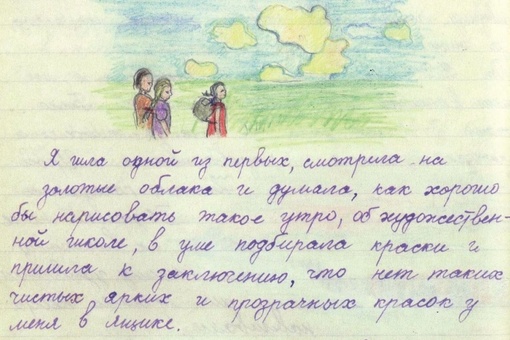 Я шла одной из первых, смотрела на
золотые облака и думала, как хорошо
бы нарисовать такое утро, об художествен-
ной школе, в уме подбирала краски и
пришла к заключению, что нет таких
чистых ярких и прозрачных красок у
меня в ящике.